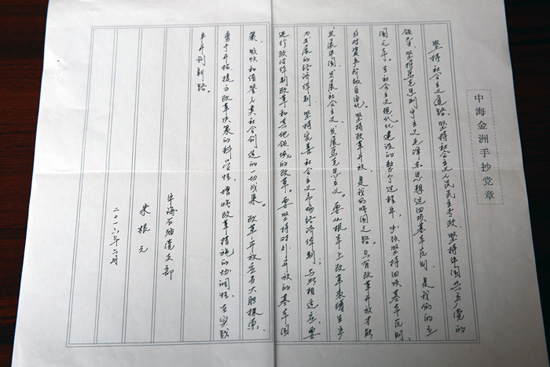 中海金洲手抄党章
坚持社会主义道路、坚持社会主义人民民主专政、坚持中国共产党的
领导、坚持马克思列宁主义毛泽东思想这四项基本原则,是我们的立
国之本。在社会主义现代化建设的整个过程中,必须坚持四项基本原则,
反对资产阶级自由化。坚持改革开放,是我们的强国之路。只有改革开放才能
发展中国、发展社会主义、发展马克思主义。要从根本上改革束缚生产
力发展的经济体制,坚持完善社会主义市场经济体制;与此相适应,要
进行政治体制改革和其他领域的改革。要坚持对外开放的基本国
策,吸收和借鉴人类社会创造的一切成果。改革开放应当大胆探索,
勇于开拓,提高改革决策的科学性,增强改革措施的协调性,在实践
中开创新路。
中海石油党支部
朱 元
二〇一六年 月